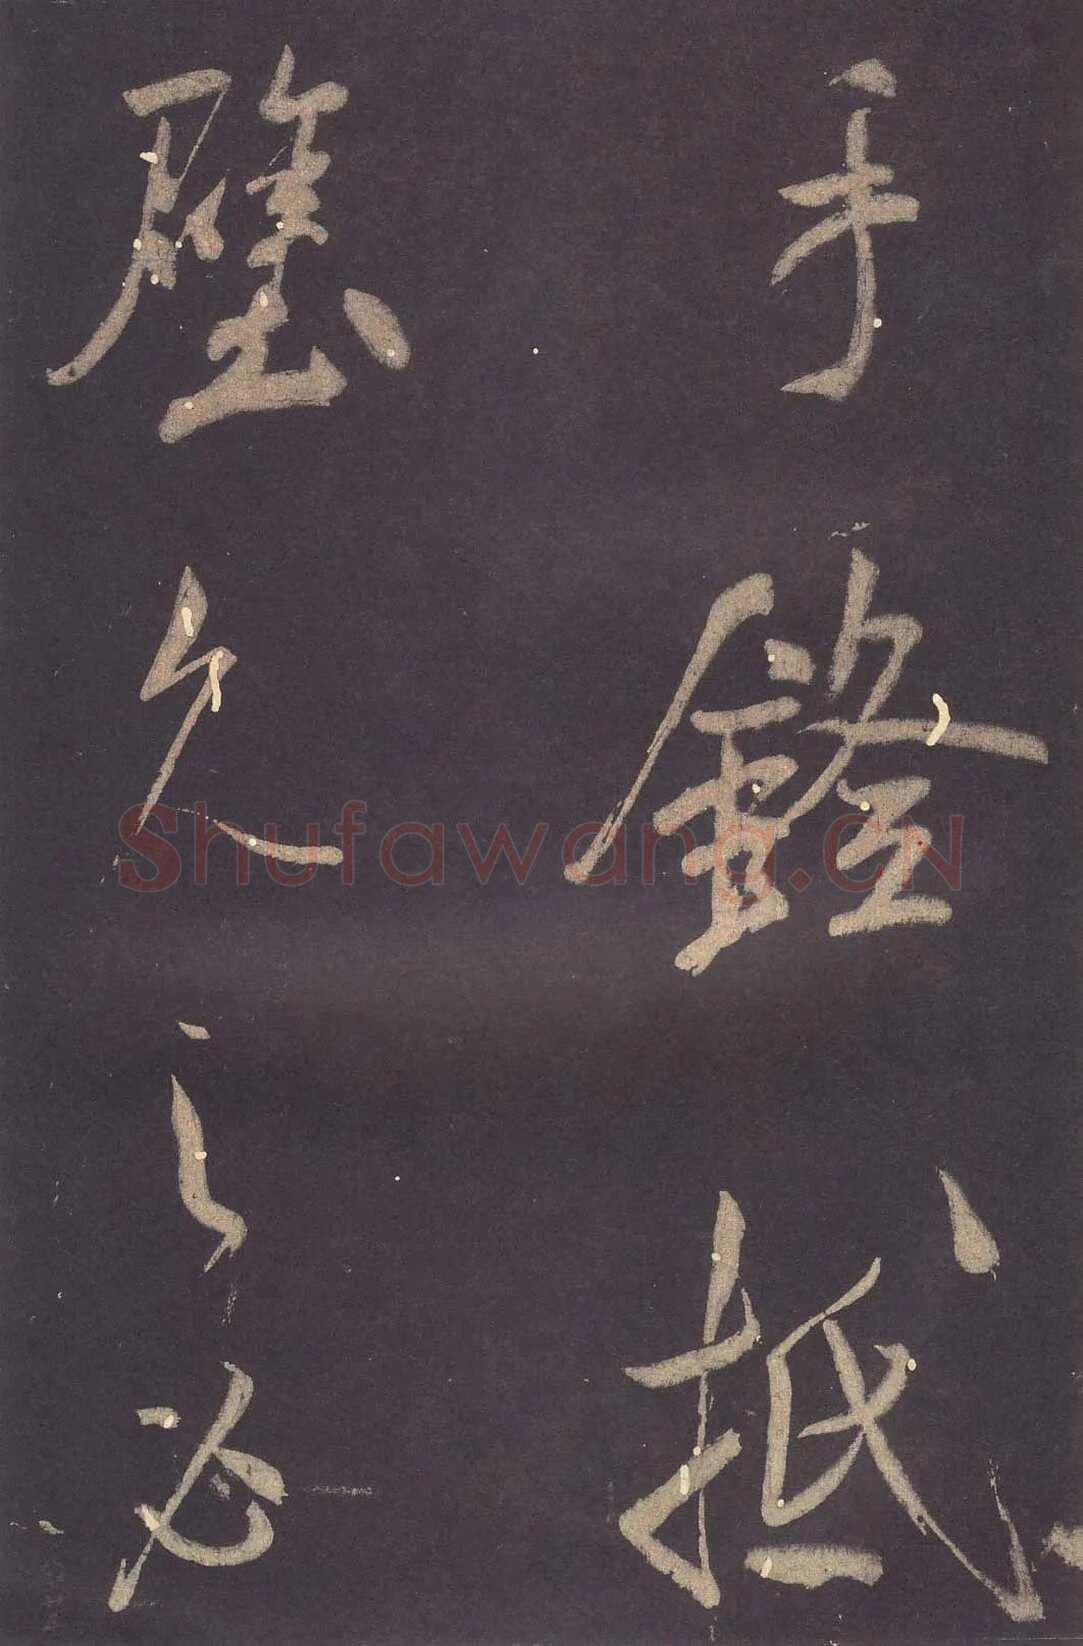 手鐙抵
壁久之必
Shufawang.CN